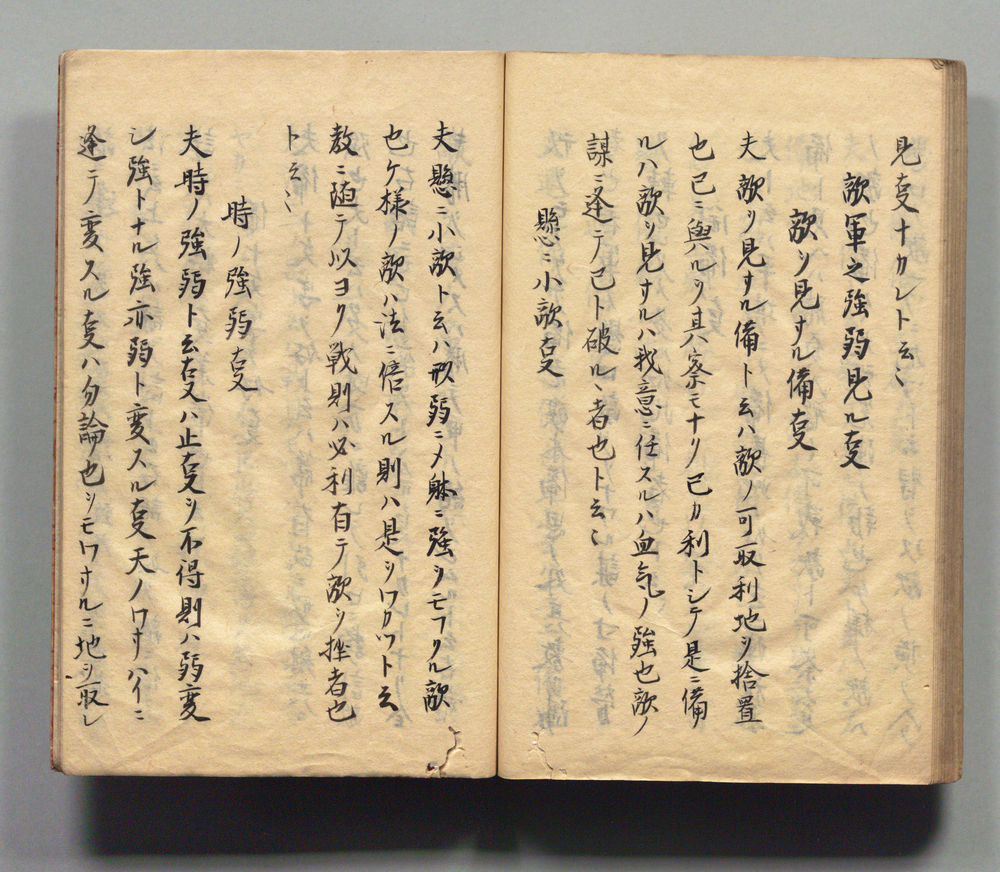 見叓ナカレト云〻
敵軍之強弱見ル叓
敵ヲ見すル備叓
夫敵ヲ見すル備ト云ハ敵ノ可取利地ヲ捨置
也已ニ與ルヲ其ハ察モナリ已カ利トシテ是ニ備
ルハ敵ヲ見すルハ我意ニ任スルハ血气ノ強也敵ノ
謀ニ逢テ已ト破ル丶者也ト云〻
懸ニ小敵叓
夫懸ニ小敵ト云ハ形弱ニメ躰ニ強ヲモフクル敵
也ケ様ノ敵ハ法ニ倍スル則ハ是ヲワカツト云
教ニ随テ以ヨク戦則ハ必利有テ敵ヲ挫者也
ト云〻
時ノ強弱叓
夫時ノ強弱ト云叓ハ止叓ヲ不得則ハ弱変
シ強トナル強亦弱ト変スル叓天ノワすハイニ
逢テ変スル叓ハ勿論也ヲモワすルニ地ヲ取レ